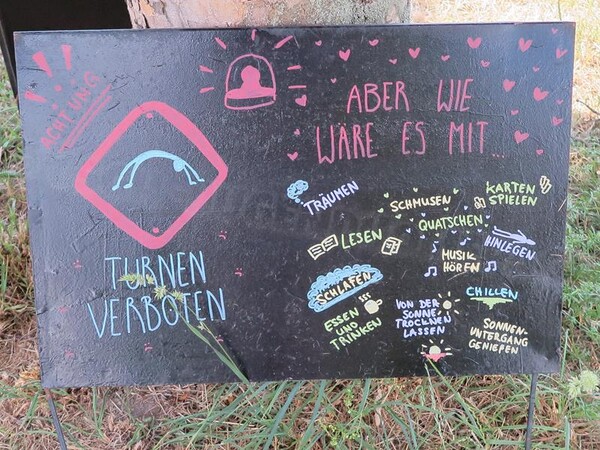 ACHTUNG
TURNEN
VERBOTEN
ABER WIE
WÄRE ES MIT...
TRÄUMEN
SCHMUSEN
KARTEN
SPIELEN
QUATSCHEN
LESEN
HINLEGEN
MUSIK
HÖREN
SCHLAFEN
CHILLEN
ESSEN
UND
TRINKEN
VON DER
SONNE
TROCKNEN
LASSEN
SONNEN-
UNTERGANG
GENIEßEN